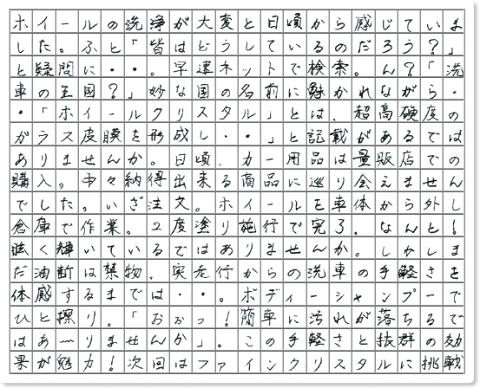 ホイールの洗浄が大変と日頃から感じていま
した。ふと「皆はどうしているのだろう？」
と疑問に・・。早速ネットで検索。ん？「洗
車の王国？」妙な国の名前に魅かれながら・
・「ホイールクリスタル」とは、超高硬度の
ガラス皮膜を形成し・・」と記載があるでは
ありませんか。日頃、カー用品は量販店での
購入。中々納得出来る商品に巡り会えません
でした。いざ注文。ホイールを車体から外し
倉庫で作業。２度塗り施行で完了。なんと！
眩く輝いているではありませんか。しかしま
だ油断は禁物、実走行からの洗車の手軽さを
体感するまでは・・。ボディーシャンプーで
ひと擦り。「おぉっ！簡単に汚れが落ちるで
はあ〜りませんか」。この手軽さと抜群の効
果が魅力！次回はファインクリスタルに挑戦